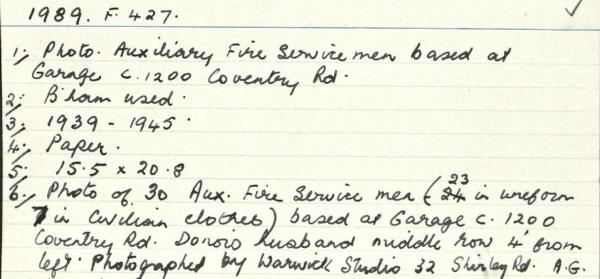 1989. F. 427.
1; Photo. Auxiliary Fire Service men based at
Garage c. 1200 Coventry Rd.
2; B'ham used.
3; 1939 - 1945.
4; Paper.
5; 15.5 x 20.8
23
6; Photo of 30 Aux. Fire Service men (24 in uniform
7 in Civilian clothes) based at Garage c. 1200
Coventry Rd. Donors husband middle row 4' from
left. Photographed by Warwick Studio 32 Shirley Rd. A.G.